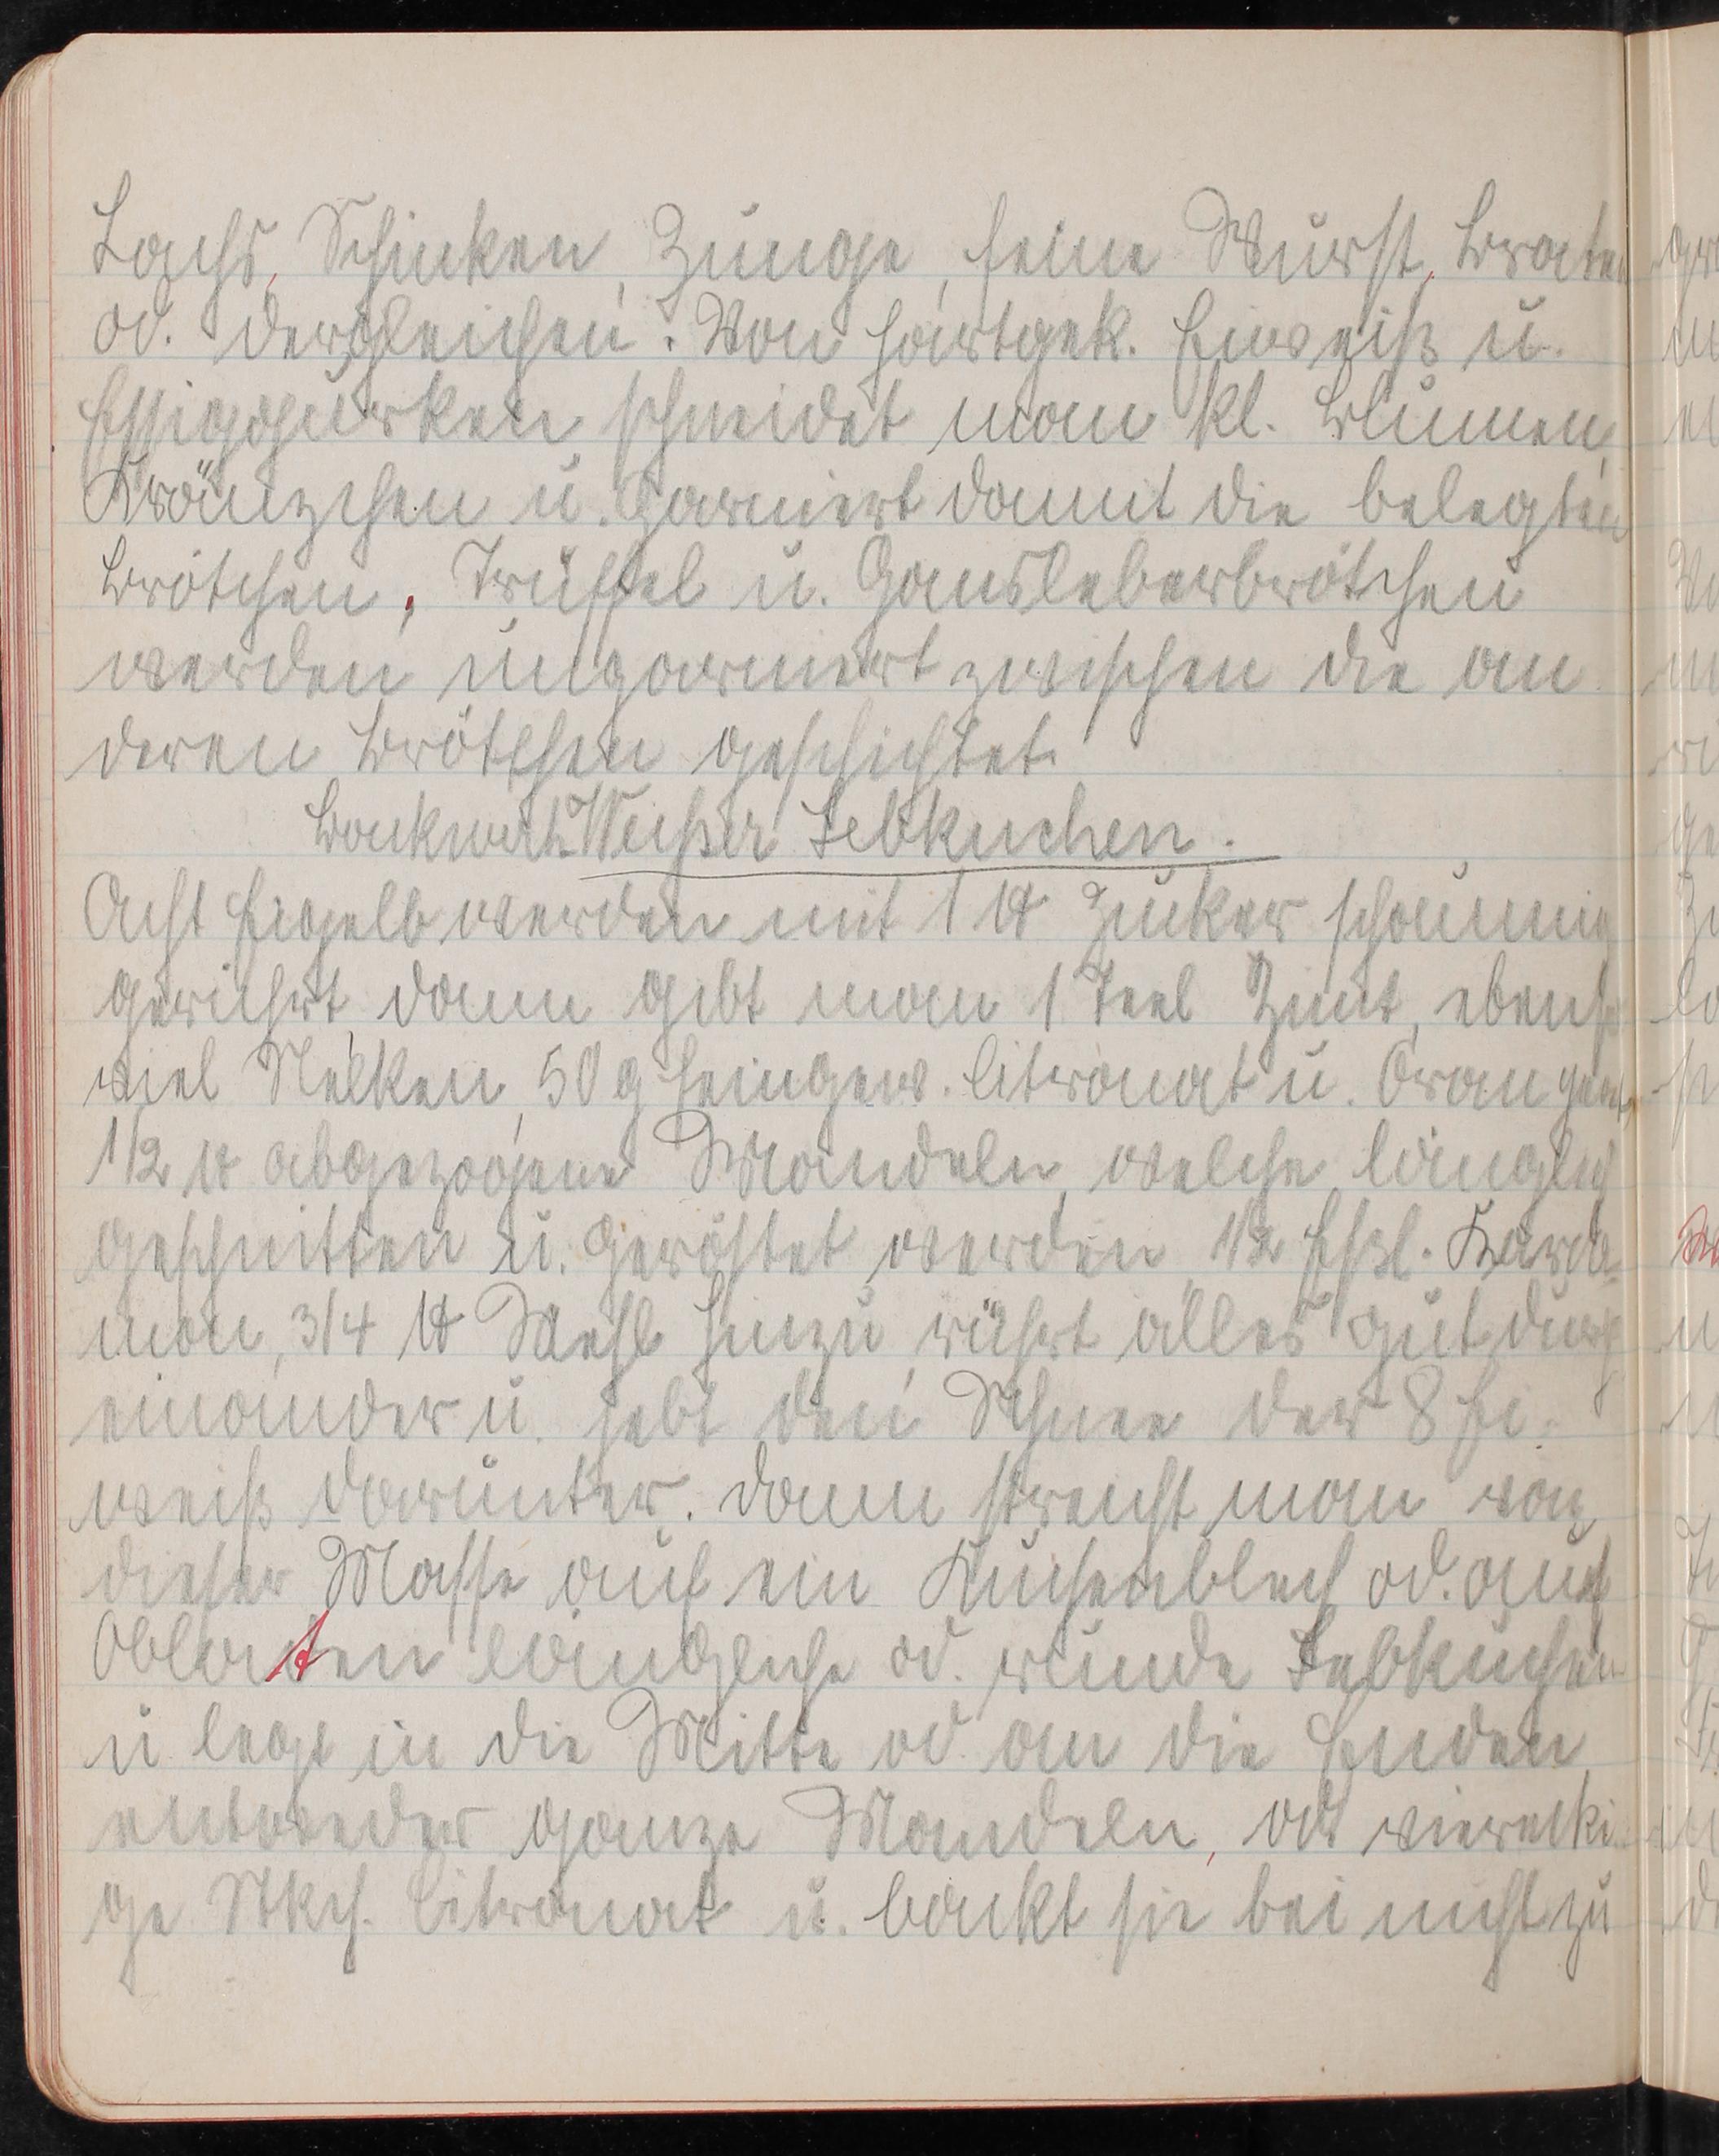 Lachs, Schinken, Zunge, feine Wurst, Braten
od. dergleichen. Von hartgek. Eiweiß u.
Essiggurken schneidet man kl. Blumen,
Kränzchen u. garniert damit die belegten
Brötchen, Trüffel u. Gansleberbrötchen
werden ungarniert zwischen die an
deren Brötchen geschichtet.
Backwerk: Weißer Lebkuchen.
Acht Eigelb werden mit 1 ℔ Zucker schaumig
gerührt, dann gibt man 1 Teel Zimt, ebenso
viel Nelken, 50 g feingew. Citronat u. Orangeat,
1/2 ℔ abgezogene Mandeln, welche länglich
geschnitten u. geröstet werden, 1/2 Eßl. Karda-
mon, 3/4 ℔ Mehl hinzu, rührt alles gut durch
einander u. hebt den Schnee der 8 Ei-
weiß darunter. Dann streicht man von
dieser Masse auf ein Kuchenblech od. auf
Oblaten längliche od. runde Lebkuchen
u. legt in die Mitte od. an die Enden
entweder ganze Mandeln, od. vierecki
ge Stkch. Citronat u. bäckt sie bei nicht zu